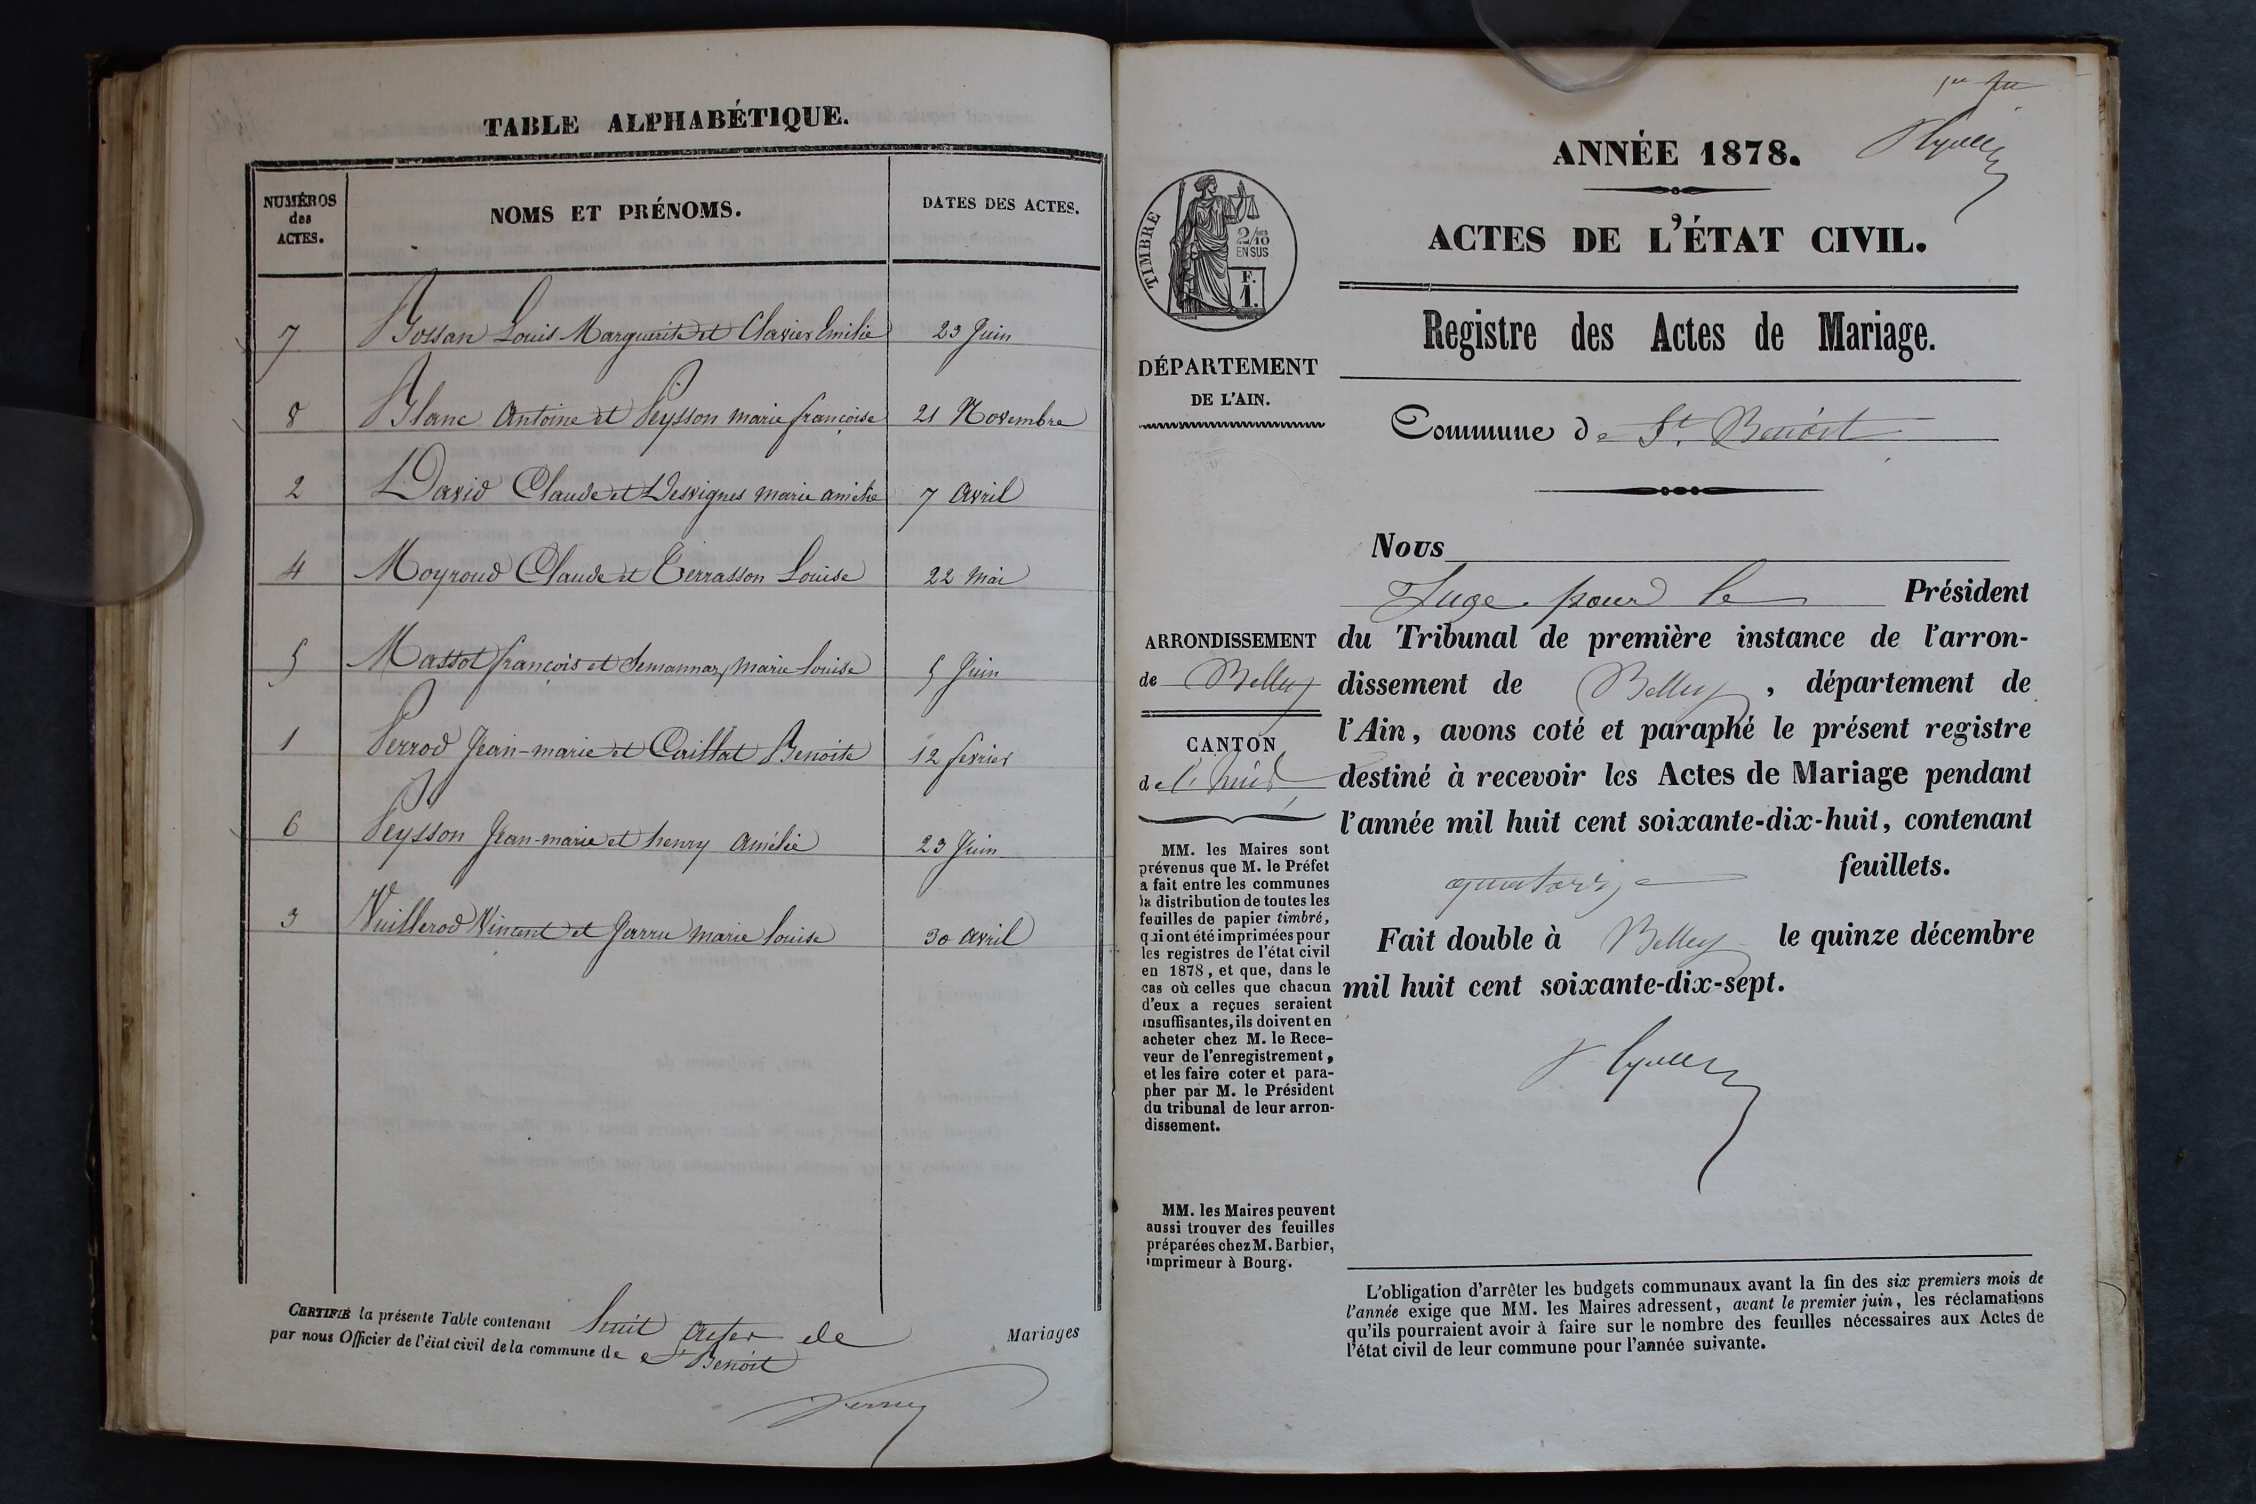 TABLE ALPHABÉTIQUE.
NUMÉROS des ACTES.
NOMS ET PRÉNOMS.
DATES DES ACTES.
7 Bossan Louis Marguerite et Clavier Emilie 23 Juin
8 Blanc Antoine et Peysson marie françoise 21 Novembre
2 David Claude et Desvignes marie amélie 7 avril
4 Moyroud Claude et Terrasson Louise 22 mai
5 Massot françois et marie Louise 5 Juin
1 Perrod Jean-marie et Caillat Benoite 12 fevrier
6 Peysson Jean-marie et henry amélie 23 Juin
3 Vuillerod Vincent et marie Louise 30 avril
CERTIFIÉ la présente Table contenant huit actes de Mariages
par nous Officier de l'état civil de la commune de St Benoit
ANNÉE 1878.
ACTES DE L'ÉTAT CIVIL.
Registre des Actes de Mariage.
Commune de St. Benoit
TIMBRE
2/10
EN SUS
F.
1.
DÉPARTEMENT
DE L'AIN.
ARRONDISSEMENT
de Belley
CANTON
de
MM. les Maires sont
prévenus que M. le Préfet
a fait entre les communes
la distribution de toutes les
feuilles de papier timbré,
qui ont été imprimées pour
les registres de l'état civil
en 1878, et que, dans le
cas où celles que chacun
d'eux a reçues seraient
insuffisantes, ils doivent en
acheter chez M. le Rece-
veur de l'enregistrement,
et les faire coter et para-
pher par M. le Président
du tribunal de leur arron-
dissement.
MM. les Maires peuvent
aussi trouver des feuilles
préparées chez M. Barbier,
imprimeur à Bourg.
Nous
Juge pour le Président
du Tribunal de première instance de l'arron-
dissement de Belley, département de
l'Ain, avons coté et paraphé le présent registre
destiné à recevoir les Actes de Mariage pendant
l'année mil huit cent soixante-dix-huit, contenant
quatorze feuillets.
Fait double à Belley le quinze décembre
mil huit cent soixante-dix-sept.
L'obligation d'arrêter les budgets communaux avant la fin des six premiers mois de
l'année exige que MM. les Maires adressent, avant le premier juin, les réclamations
qu'ils pourraient avoir à faire sur le nombre des feuilles nécessaires aux Actes de
l'état civil de leur commune pour l'année suivante.